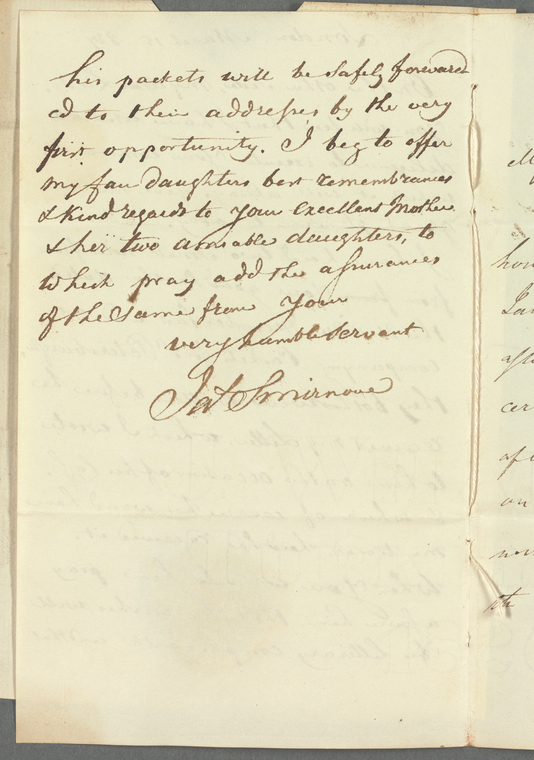 his packets will be safely forward
ed to their addresses by the very
first opportunity. I beg to offer
my fair daughters best remembrances
& kind regards to your excellent Mother
& her two amiable daughters, to
which pray add the assurances
of the same from your
very humble servant
Jas Smirnove